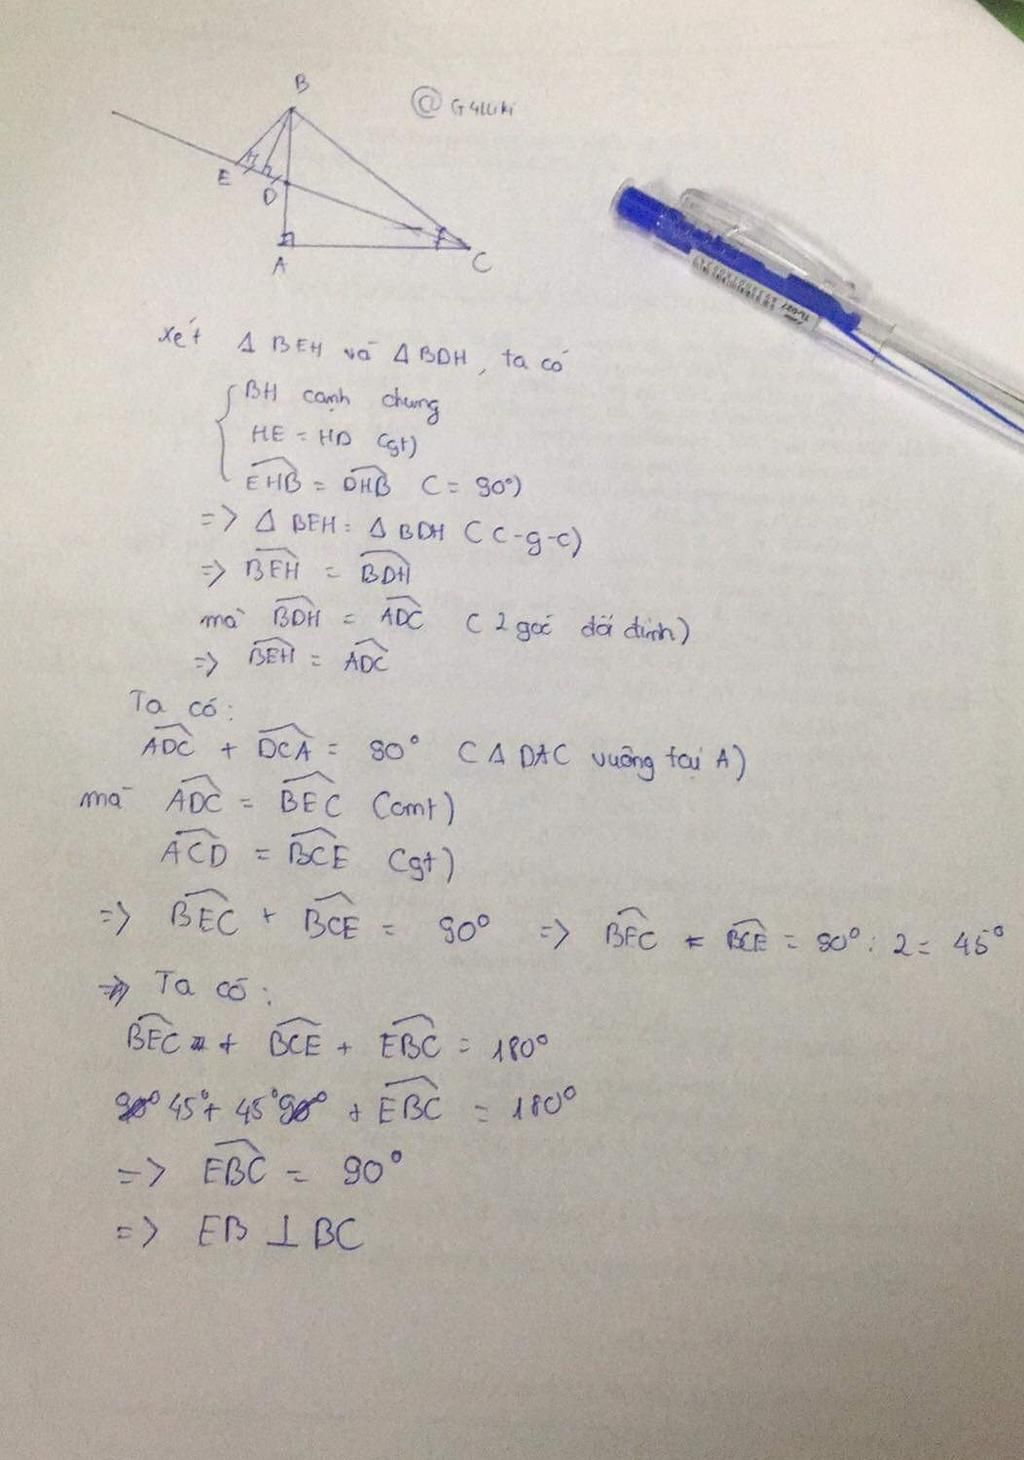 B
@ G4lliki
E
D
A
C
Xét Δ BEH và Δ BDH, ta có
BH cạnh chung
HE = HD (gt)
EHB = DHB (= 90°)
=> Δ BEH = Δ BDH (c-g-c)
=> BEH = BDH
mà BDH = ADC (2 góc đối đỉnh)
=> BEH = ADC
Ta có:
ADC + DCA = 90° (Δ DAC vuông tại A)
mà ADC = BEC (cmt)
ACD = BCE (gt)
=> BEC + BCE = 90° => BEC = BCE = 90° : 2 = 45°
=> Ta có:
BEC + BCE + EBC = 180°
45° + 45° + EBC = 180°
=> EBC = 90°
=> EB ⊥ BC